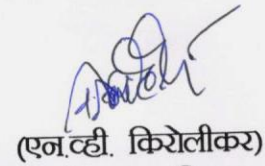 (एन.व्ही. किरोलीकर)